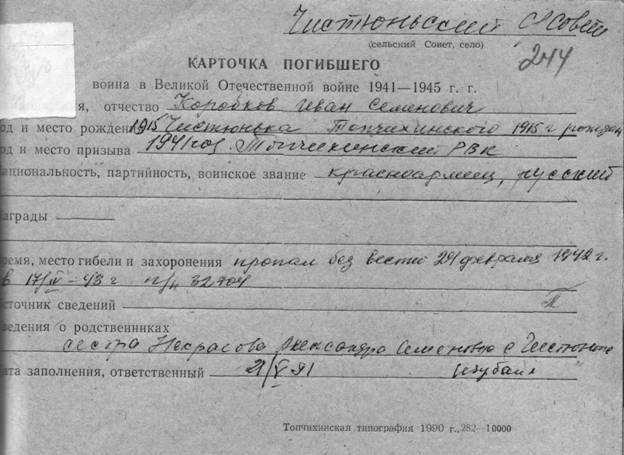 Чистюньский с/совет
(сельский Совет, село)
244
КАРТОЧКА ПОГИБШЕГО
воина в Великой Отечественной войне 1941—1945 г. г.
я, отчество Коробков Иван Семенович
од и место рождения 1915 Чистюнька Топчихинского 1915 г рожден
од и место призыва 1941 год. Топчихинский РВК
ациональность, партийность, воинское звание красноармеец, русский
аграды
ремя, место гибели и захоронения пропал без вести 24 февраля 1942 г.
в 17/ -43 г п/н 32704
сточник сведений
ведения о родственниках
сестра Некрасова Александра Семеновна с Чистюнька
ата заполнения, ответственный 2/V 91
Топчихинская типография 1990 г., 282—10000